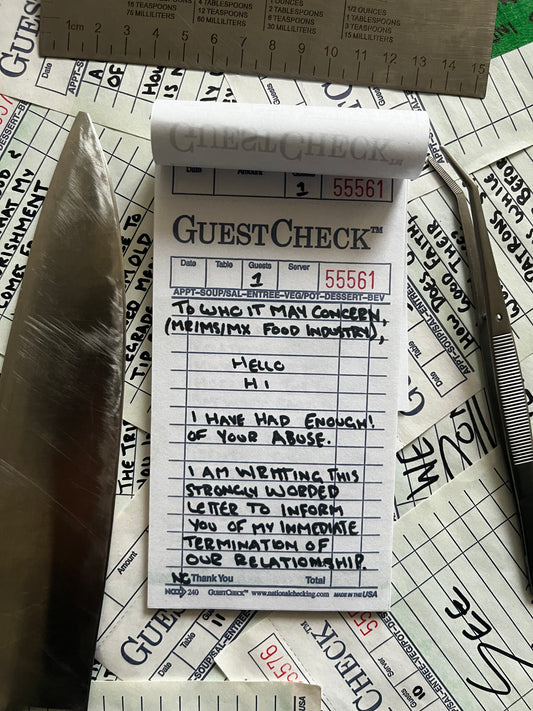 1 CUPS
16 TEASPOONS
75 MILLILITERS
4 TABLESPOONS
12 TEASPOONS
60 MILLILITERS
1 OUNCES
2 TABLESPOONS
6 TEASPOONS
30 MILLILITERS
1/2 OUNCES
1 TABLESPOONS
3 TEASPOONS
15 MILLILITERS
1cm 2 3 4 5 6 7 8 9 10 11 12 13 14 15
GUESTCHECK™
Date Amount Guests
1 55561
GUESTCHECK™
Date Table Guests Server
1 55561
APPT-SOUP/SAL-ENTREE-VEG/POT-DESSERT-BEV
TO WHO IT MAY CONCERN,
(MR/MS/MX FOOD INDUSTRY),
HELLO
HI
I HAVE HAD ENOUGH!
OF YOUR ABUSE.
I AM WRITTING THIS
STRONGLY WORDED
LETTER TO INFORM
YOU OF MY IMMEDIATE
TERMINATION OF
OUR RELATIONSHIP.
NO Thank You Total
NCCO 240 GUESTCHECK™ www.nationalchecking.com MADE IN THE USA
PATRONS
WHILE
HOW DOES
GOOD FAITH,
THEIR
WE
SEE
Amount
55576
Date
Table
Guests
10
GUESTCHECK
USA